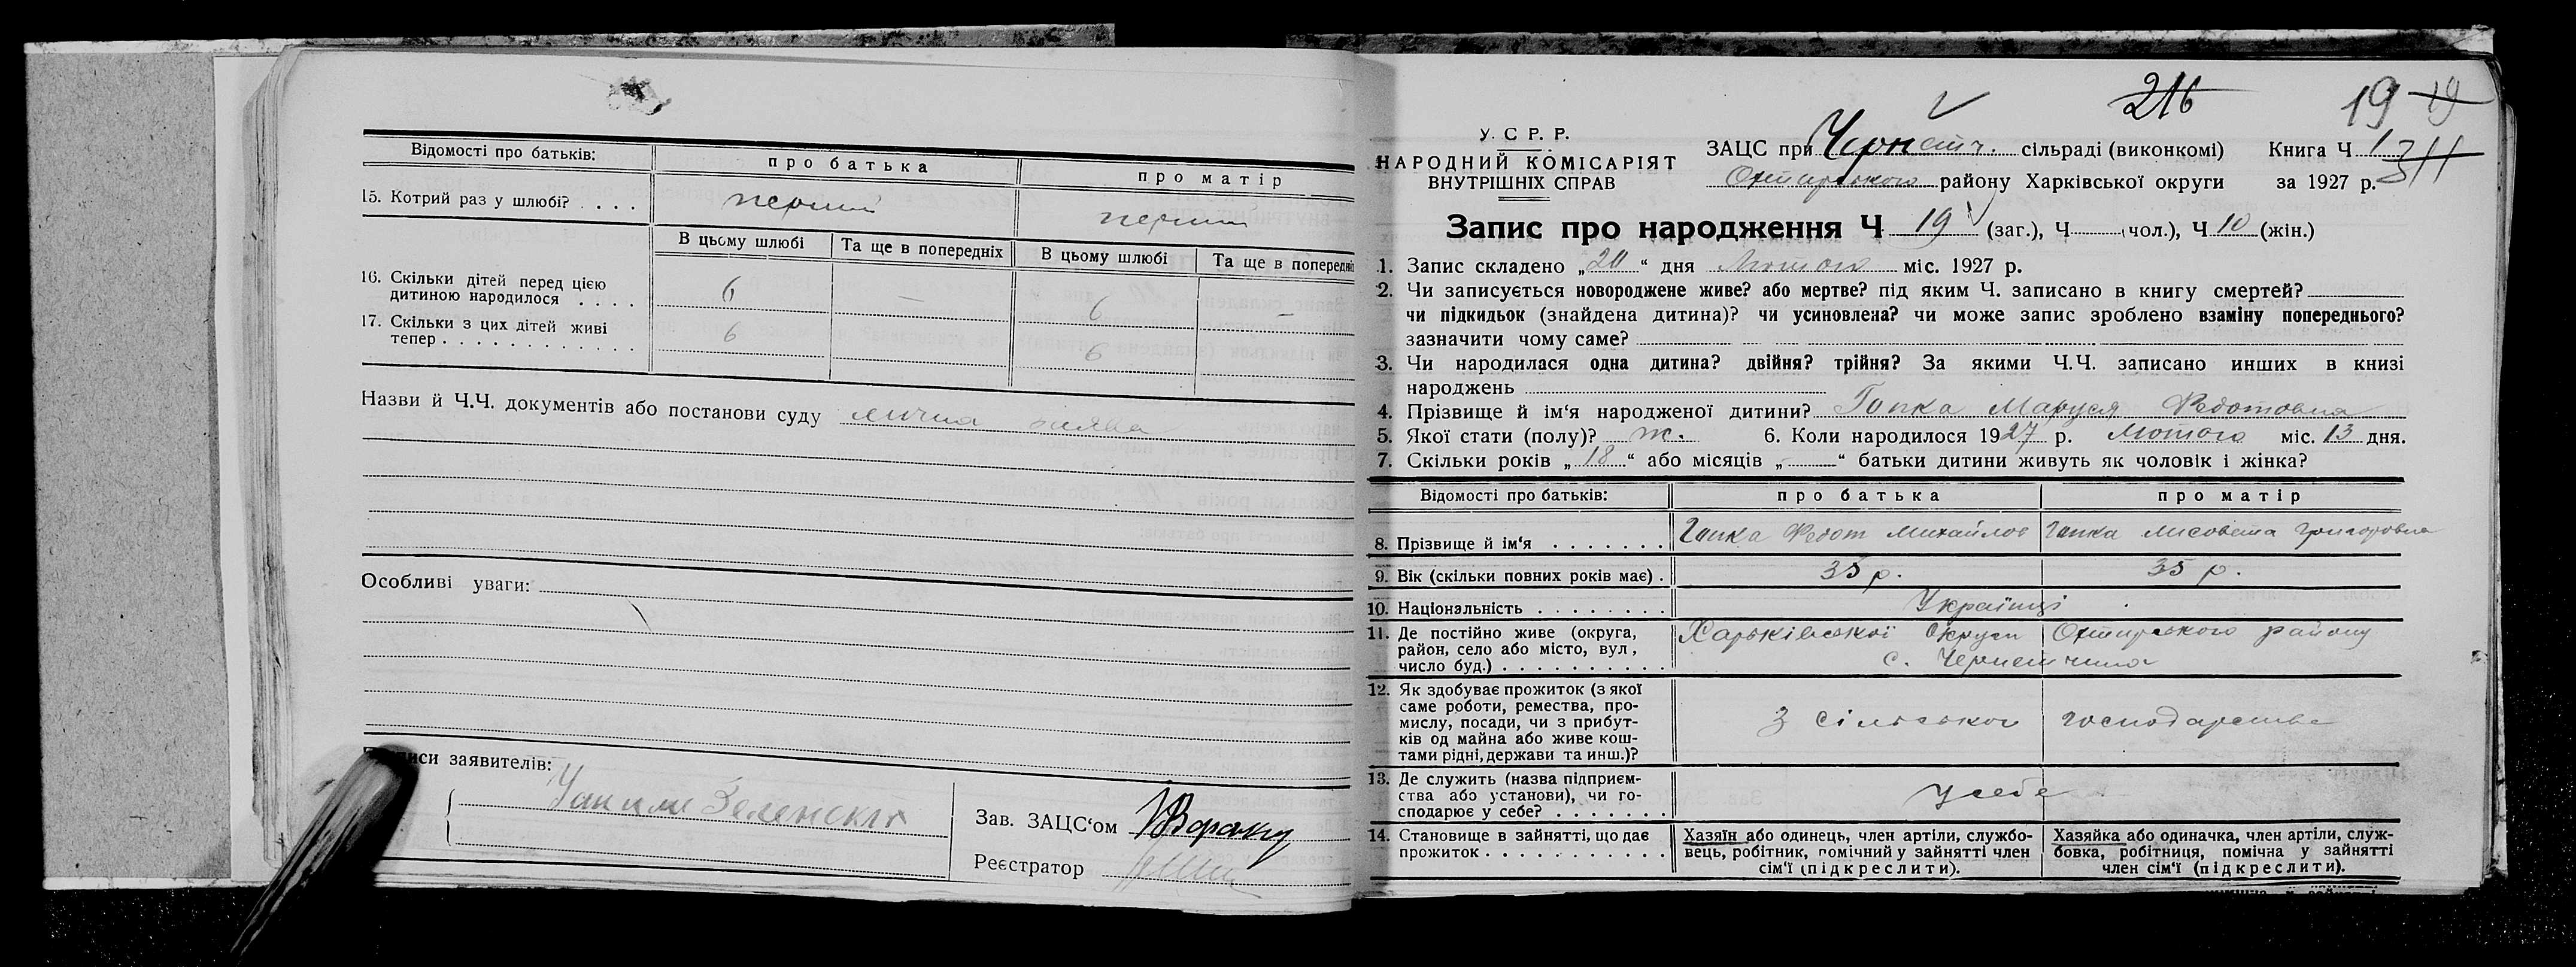 Відомості про батьків: про батька про матір
15. Котрий раз у шлюбі? . . . . перший перший
В цьому шлюбі Та ще в попередніх В цьому шлюбі Та ще в попередніх
16. Скільки дітей перед цією
дитиною народилося . . . . 6 — 6 —
17. Скільки з цих дітей живі
тепер . . . . . . . . . . . . 6 6
Назви й Ч.Ч. документів або постанови суду лична заява
Особливі уваги:
писи заявителів:
Зеленский
Зав. ЗАЦС‘ом
Реєстратор
216 19 19
У. С Р. Р.
НАРОДНИЙ КОМІСАРІЯТ
ВНУТРІШНІХ СПРАВ
ЗАЦС при Чернетч. сільраді (виконкомі) Книга Ч 1 311
Охтирського району Харківської округи за 1927 р.
Запис про народження Ч 19 (заг.), Ч чол.), Ч 10 (жін.)
1. Запис складено „20“ дня Лютого міс. 1927 р.
2. Чи записується новороджене живе? або мертве? під яким Ч. записано в книгу смертей?
чи підкидьок (знайдена дитина)? чи усиновлена? чи може запис зроблено взаміну попереднього?
зазначити чому саме?
3. Чи народилася одна дитина? двійня? трійня? За якими Ч.Ч. записано инших в книзі
народжень
4. Прізвище й ім‘я народженої дитини? Гопка Маруся Федотовна
5. Якої стати (полу)? ж. 6. Коли народилося 1927 р. Лютого міс. 13 дня.
7. Скільки років „18“ або місяців „—“ батьки дитини живуть як чоловік і жінка?
Відомості про батьків: про батька про матір
8. Прізвище й ім‘я . . . . . . . Гопка Федот Михайлов Гопка Лисовета Григоровна
9. Вік (скільки повних років має) . 35 р. 35 р.
10. Національність . . . . . . . . Українці
11. Де постійно живе (округа, Харьківської Округи Охтирського району
район, село або місто, вул, с. Чернетчина
число буд.) . . . . . . . . . . .
12. Як здобуває прожиток (з якої
саме роботи, ремества, про-
мислу, посади, чи з прибут- З сільского господарства
ків од майна або живе кош-
тами рідні, держави та инш.)?
13. Де служить (назва підприєм-
ства або установи), чи го- у себе
сподарює у себе? . . . . . . .
14. Становище в зайнятті, що дає Хазяїн або одинець, член артіли, службо- Хазяйка або одиначка, член артіли, служ-
прожиток . . . . . . . . . . . . вець, робітник, помічний у зайнятті член бовка, робітниця, помічна у зайнятті
сім‘ї (підкреслити). член сім‘ї (підкреслити).